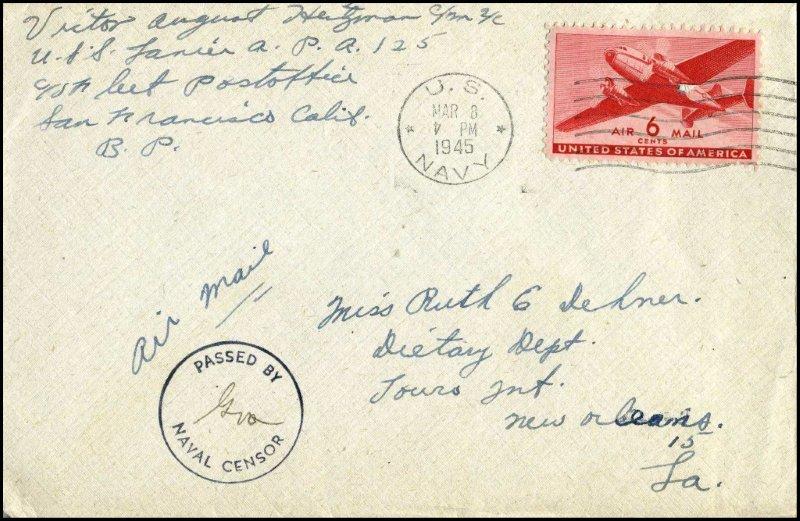 Victor August Heitzman C/M 2/c
U.S.S. Lanier A. P. A. 125
C/o Fleet Postoffice
San Francisco Calif.
B. P.
U. S. NAVY
MAR 8
PM
1945
AIR 6 MAIL
CENTS
UNITED STATES OF AMERICA
Air Mail
Miss Ruth E Dehner.
Dietary Dept.
Touro Inf.
New Orleans.
15
La.
PASSED BY
NAVAL CENSOR